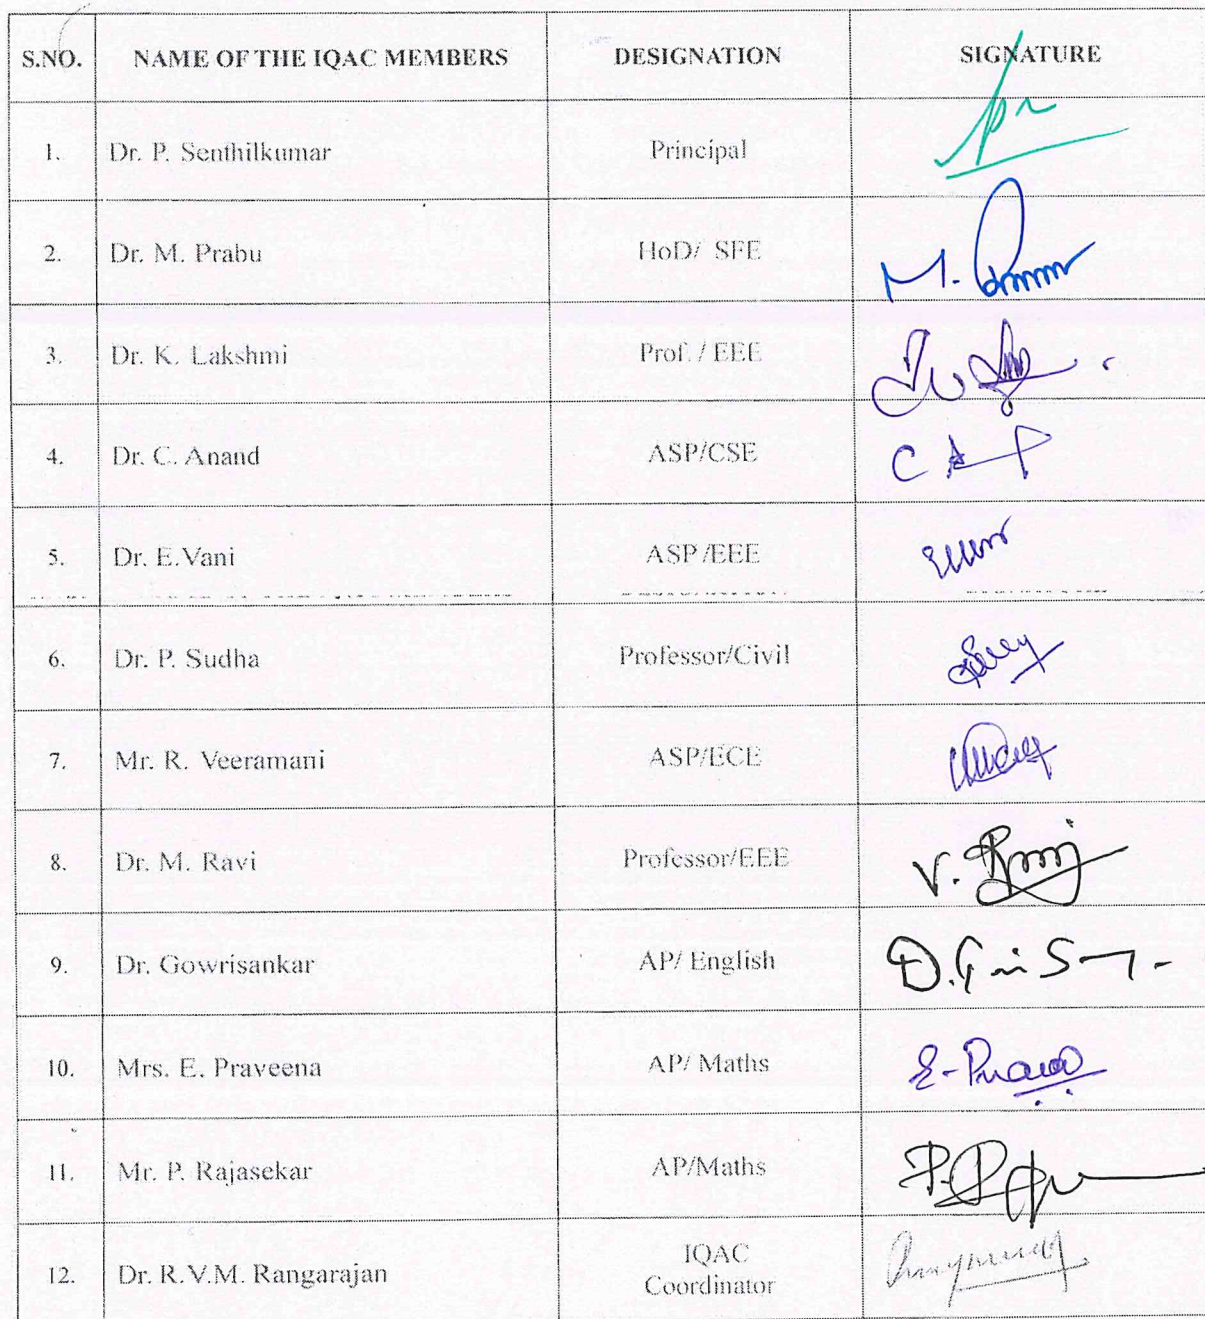 S.NO. NAME OF THE IQAC MEMBERS DESIGNATION SIGNATURE
1. Dr. P. Senthilkumar Principal
2. Dr. M. Prabu HoD/ SFE M.
3. Dr. K. Lakshmi Prof. / EEE
4. Dr. C. Anand ASP/CSE C
5. Dr. E.Vani ASP /EEE
6. Dr. P. Sudha Professor/Civil
7. Mr. R. Veeramani ASP/ECE
8. Dr. M. Ravi Professor/EEE V.
9. Dr. Gowrisankar AP/ English D.
10. Mrs. E. Praveena AP/ Maths E-
11. Mr. P. Rajasekar AP/Maths P.
12. Dr. R.V.M. Rangarajan IQAC
Coordinator